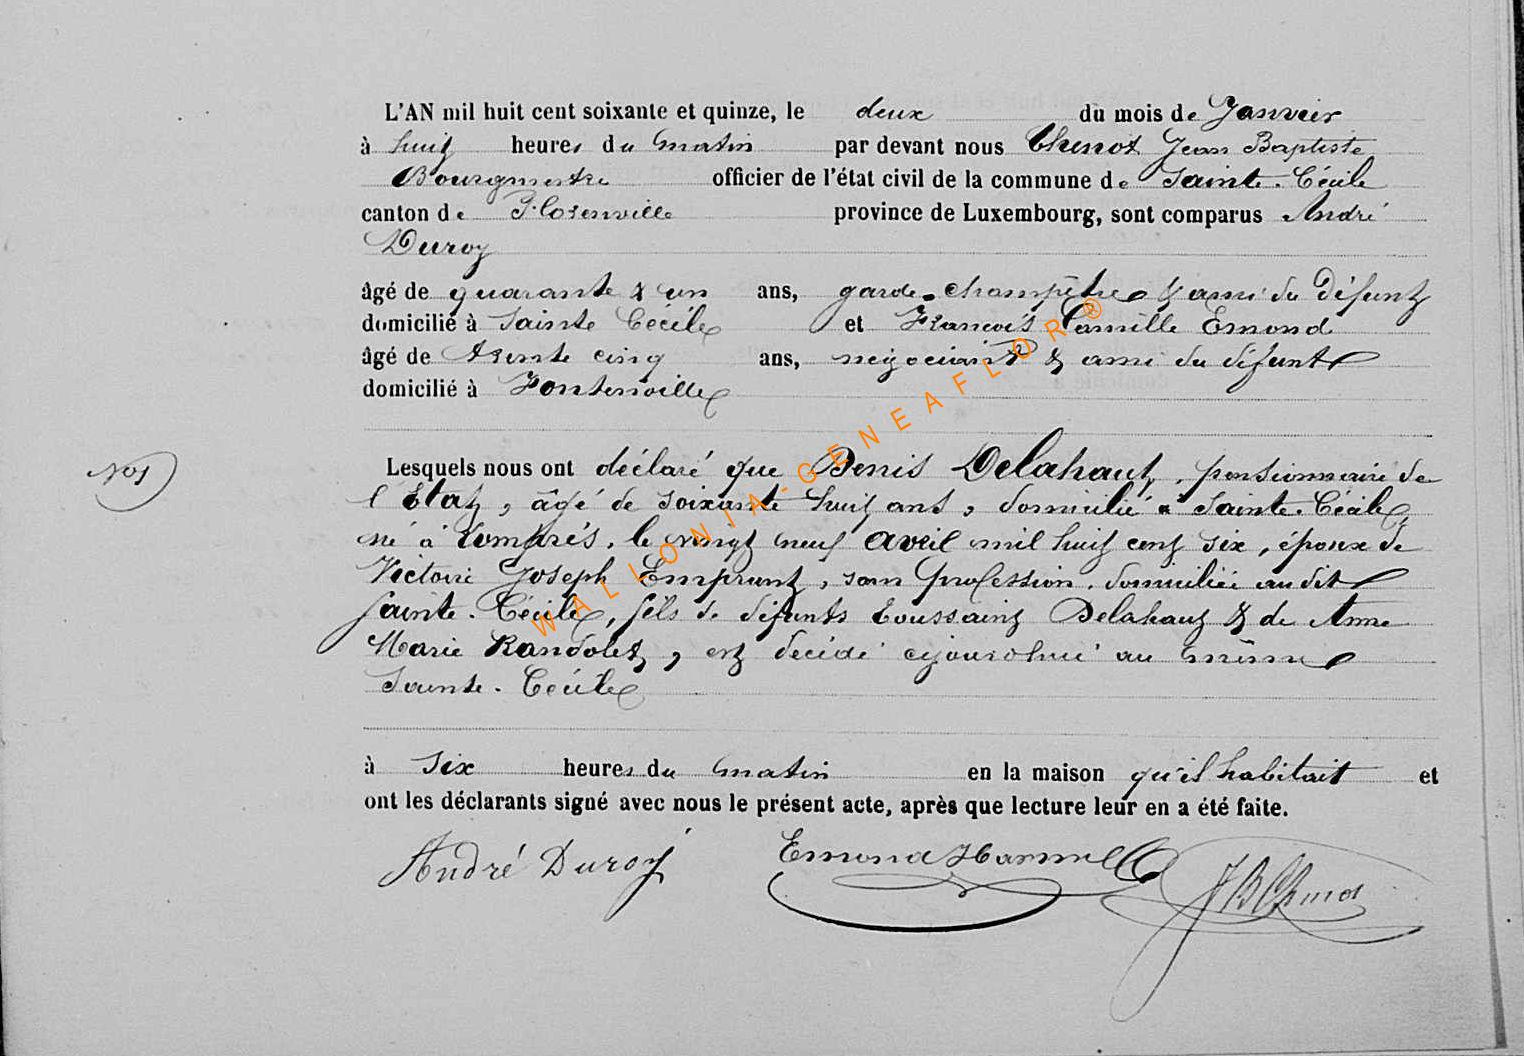 L'AN mil huit cent soixante et quinze, le deux du mois de Janvier
à huit heures du matin par devant nous Thenot Jean Baptiste
Bourgmestre officier de l'état civil de la commune de Sainte-Cécile
canton de Florenville province de Luxembourg, sont comparus André
Duroy
âgé de quarante & un ans, garde-champêtre & ami du défunt
domicilié à Sainte Cécile et François Camille Emond
âgé de trente cinq ans, négociant & ami du défunt
domicilié à Fontenoille
N°1
Lesquels nous ont déclaré que Denis Delahaut, pensionnaire de
l'Etat, âgé de soixante huit ans, domicilié à Sainte-Cécile,
né à le vingt neuf avril mil huit cent six, époux de
Victoire Joseph Emprunt, sans profession, domiciliée audit
Sainte-Cécile, fils de défunts Toussaint Delahaut & de Anne
Marie Randolet, est décédé cejourd'hui au même
Sainte-Cécile
à six heures du matin en la maison qu'il habitait et
ont les déclarants signé avec nous le présent acte, après que lecture leur en a été faite.
André Duroy Emond JBThenot
WALLONIA-GENEAFLOR®